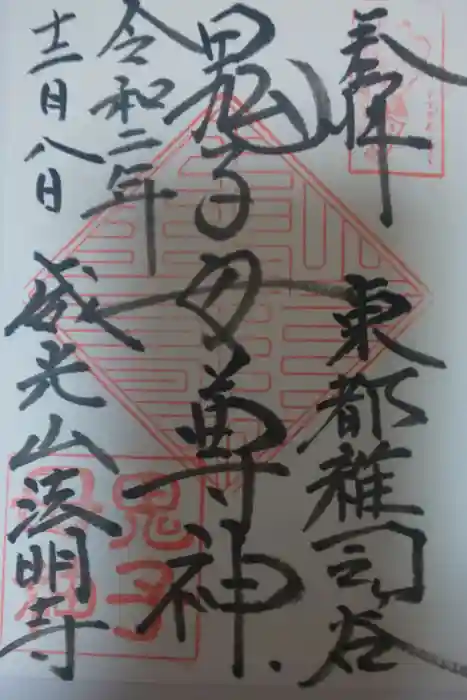 奉拝
東都雑司谷
鬼子母尊神
令和二年
十二月八日
威光山法明寺
鬼子母神